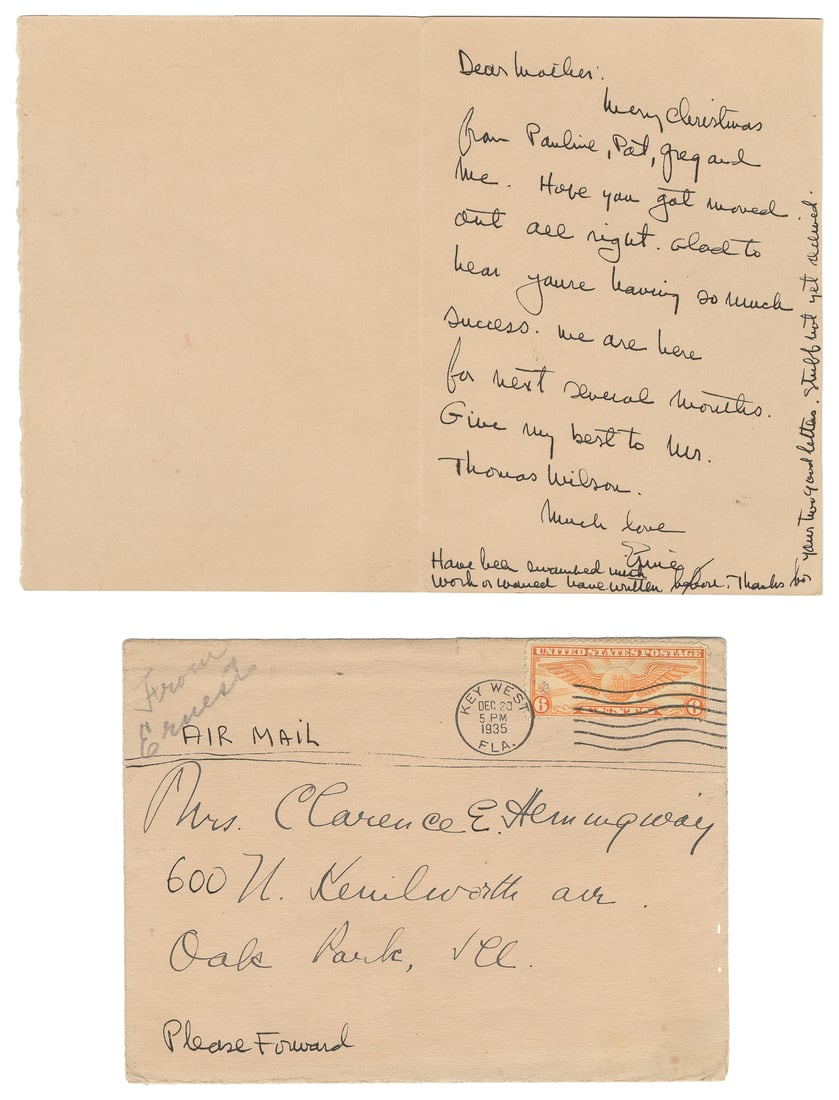 Dear Mother:
Merry Christmas
from Pauline, Pat, Greg and
me. Hope you got moved
out all right. Glad to
hear youre having so much
success. We are here
for next several months.
Give my best to Mr.
Thomas Wilson.
Much love
Ernie
Have been swamped with
work or would have written before. Thanks for
your two good letters. Stuff not yet received.
From
Ernest
AIR MAIL
KEY WEST
DEC 20
5 PM
1935
FLA.
UNITED STATES POSTAGE
6 CENTS 6
Mrs. Clarence E. Hemingway
600 N. Kenilworth ave.
Oak Park, Ill.
Please Forward